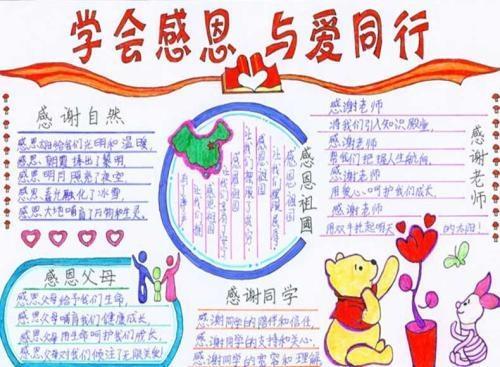 学会感恩 与爱同行
感谢自然
感恩太阳给我们光明和温暖,
感恩朝霞捧出黎明
感恩明月照亮了夜空
感恩春光融化了冰雪,
感恩大地哺育了万物和生灵.
感恩父母
感恩父母给予我们生命,
感恩父母哺育我们健康成长
感恩父母用生命呵护我们成长,
感恩父母对我们倾注了无限关爱!
感恩祖國
感恩祖国
感谢同学
感谢同学的陪伴和信任,
感谢同学的支持和关心
感谢同学的宽容和理解
感谢老师
感谢老师
将我们引入知识殿堂,
感谢老师
帮我们把握人生航向,
感谢老师
用爱心呵护我们成长
感谢老师
用双手托起明天的太阳!